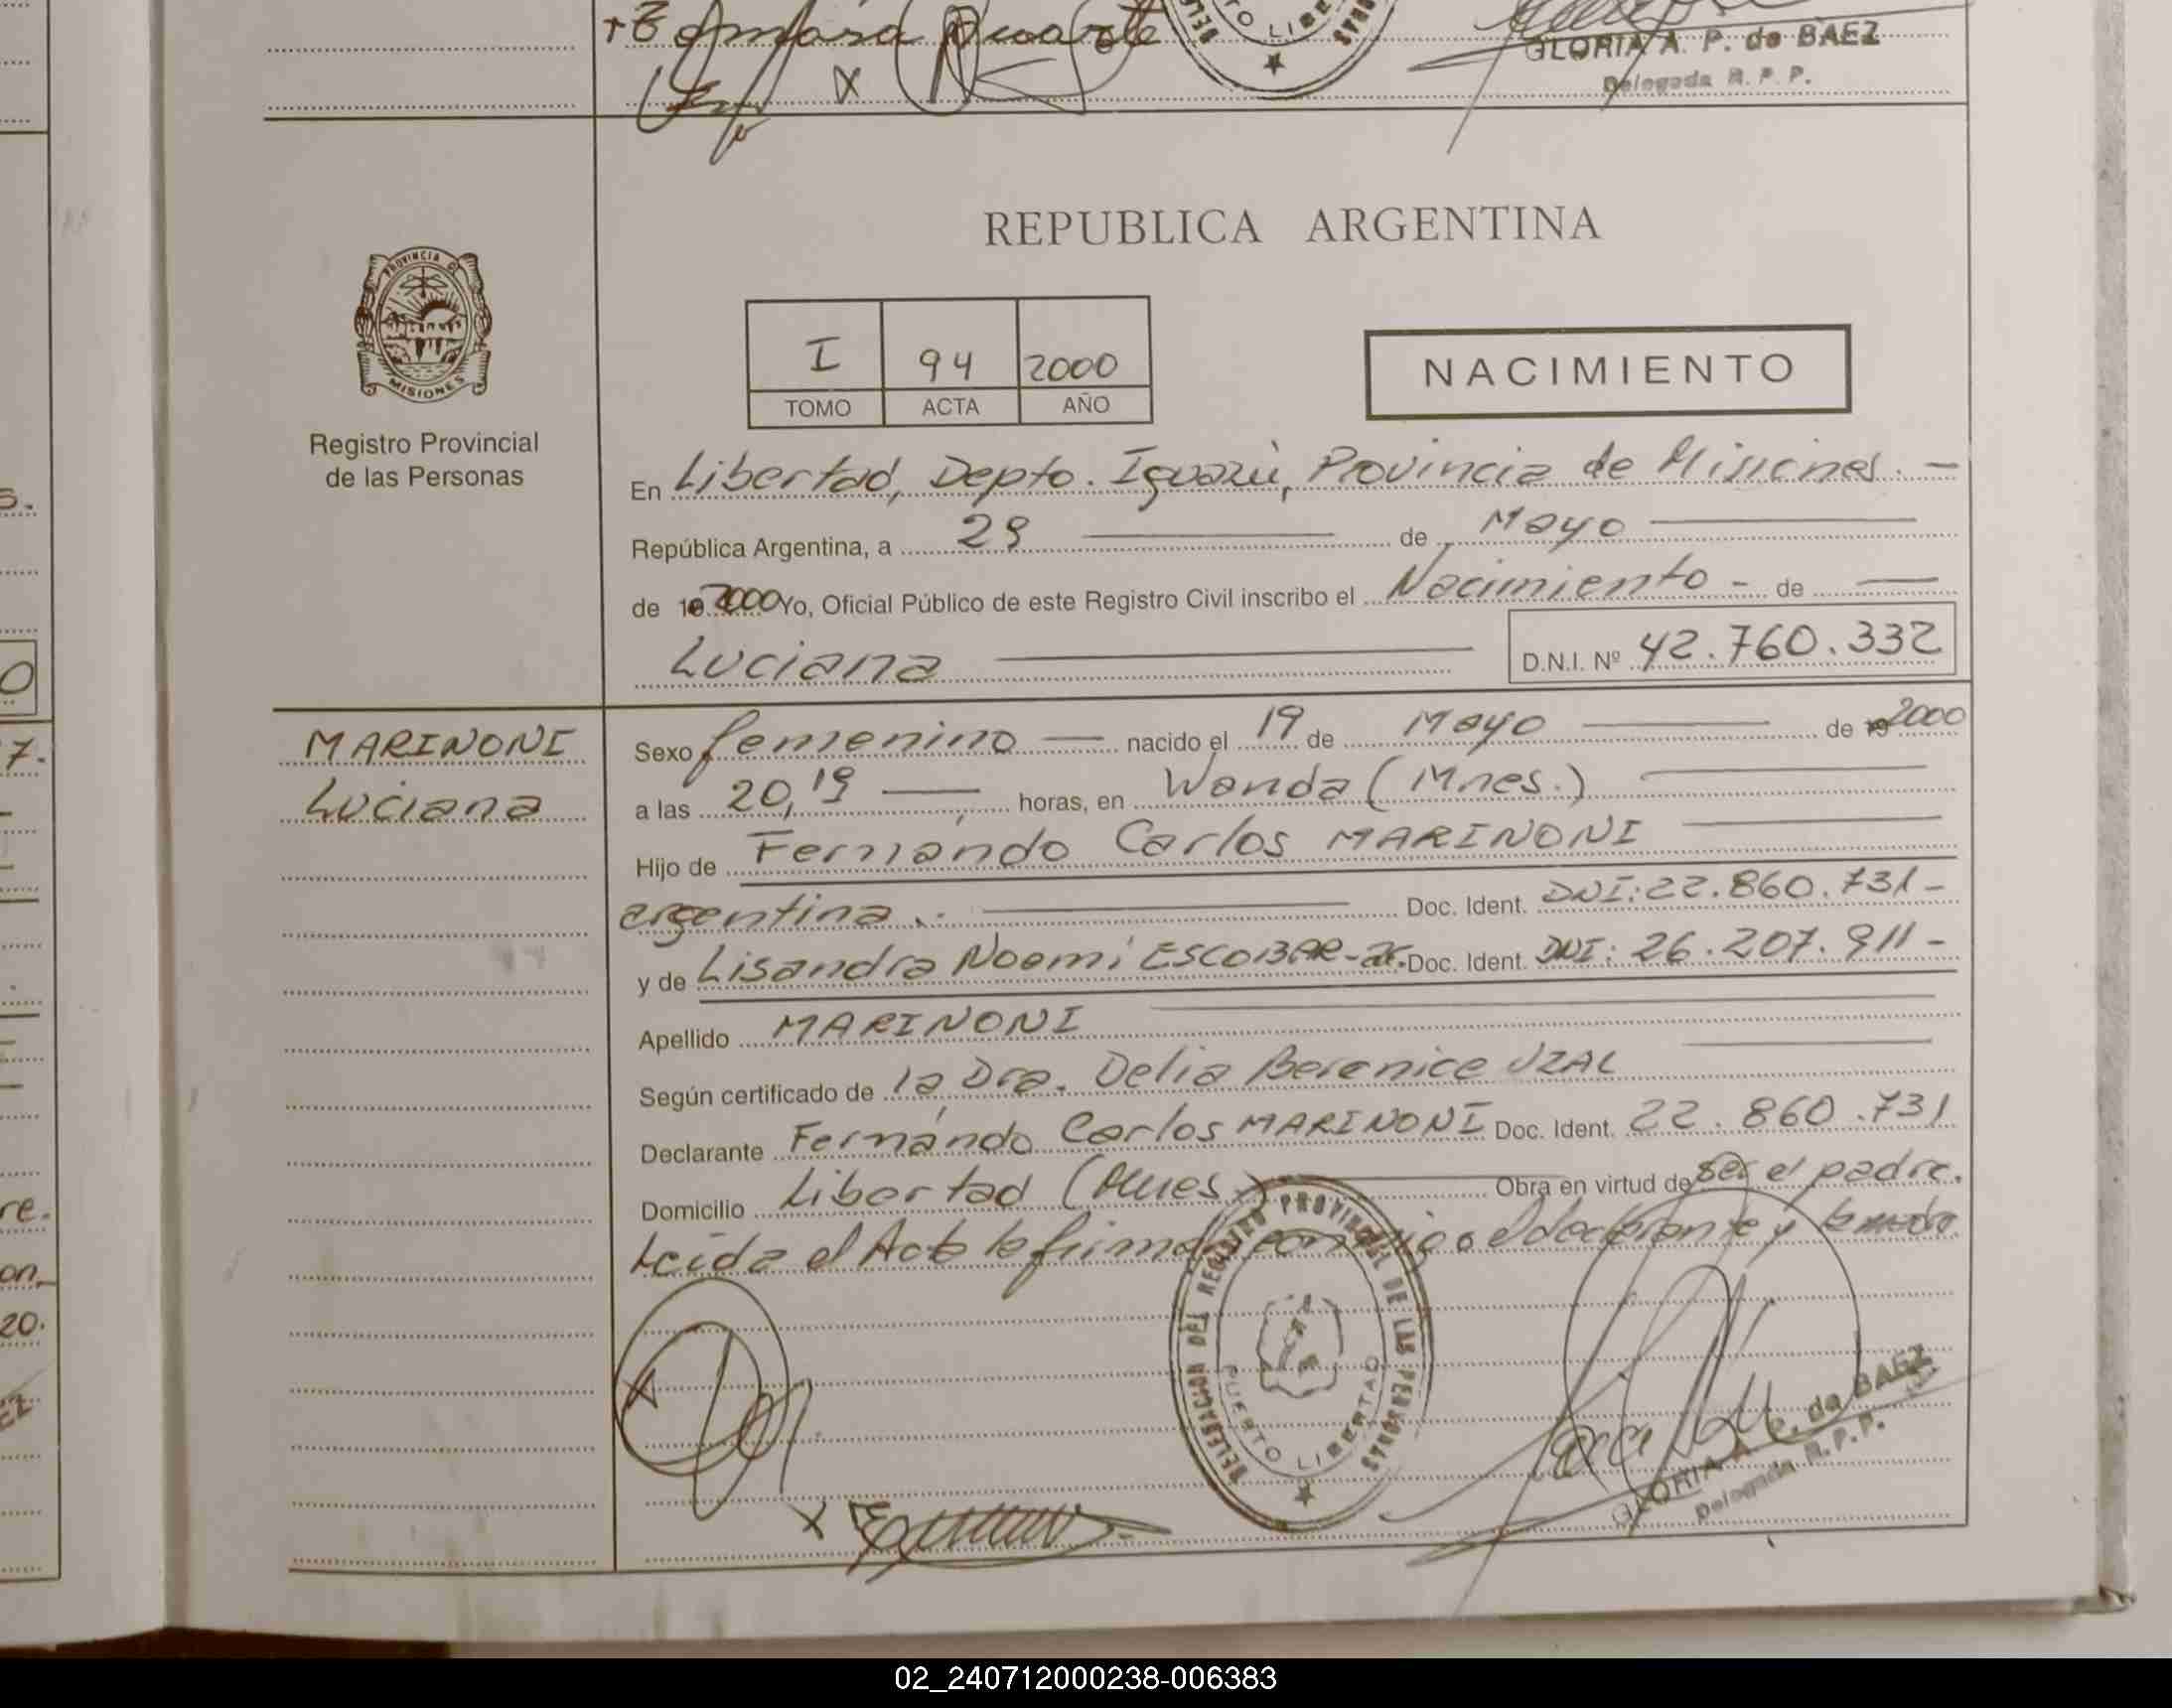 Amara Duarte
GLORIA A. P. de BAEZ
Delegada R. P. P.
REPUBLICA ARGENTINA
PROVINCIA DE
MISIONES
Registro Provincial
de las Personas
I 94 2000
TOMO ACTA AÑO
NACIMIENTO
En Libertad, Depto. Iguazú, Provincia de Misiones. —
República Argentina, a 29 — de Mayo —
de 19 2000 Yo, Oficial Público de este Registro Civil inscribo el Nacimiento - de —
Luciana —
D.N.I. Nº 42.760.332
MARINONI
Luciana
Sexo femenino — nacido el 19 de Mayo — de 19 2000
a las 20,19 — horas, en Wanda (Mnes.) —
Hijo de Fernando Carlos MARINONI —
argentina.- — Doc. Ident. DNI: 22.860.731-
y de Lisandra Noemi ESCOBAR - Doc. Ident. DNI: 26.207.911-
Apellido MARINONI —
Según certificado de la Dra. Delia Berenice UZAL —
Declarante Fernando Carlos MARINONI Doc. Ident. 22.860.731
Domicilio Libertad (Mnes) — Obra en virtud de ser el padre.
Leida el Acta la firman conmigo el declarante y la madre
DELEGACION DEL REGISTRO PROVINCIAL DE LAS PERSONAS
PUERTO LIBERTAD
GLORIA A. P. de BAEZ
Delegada R. P. P.
02_240712000238-006383